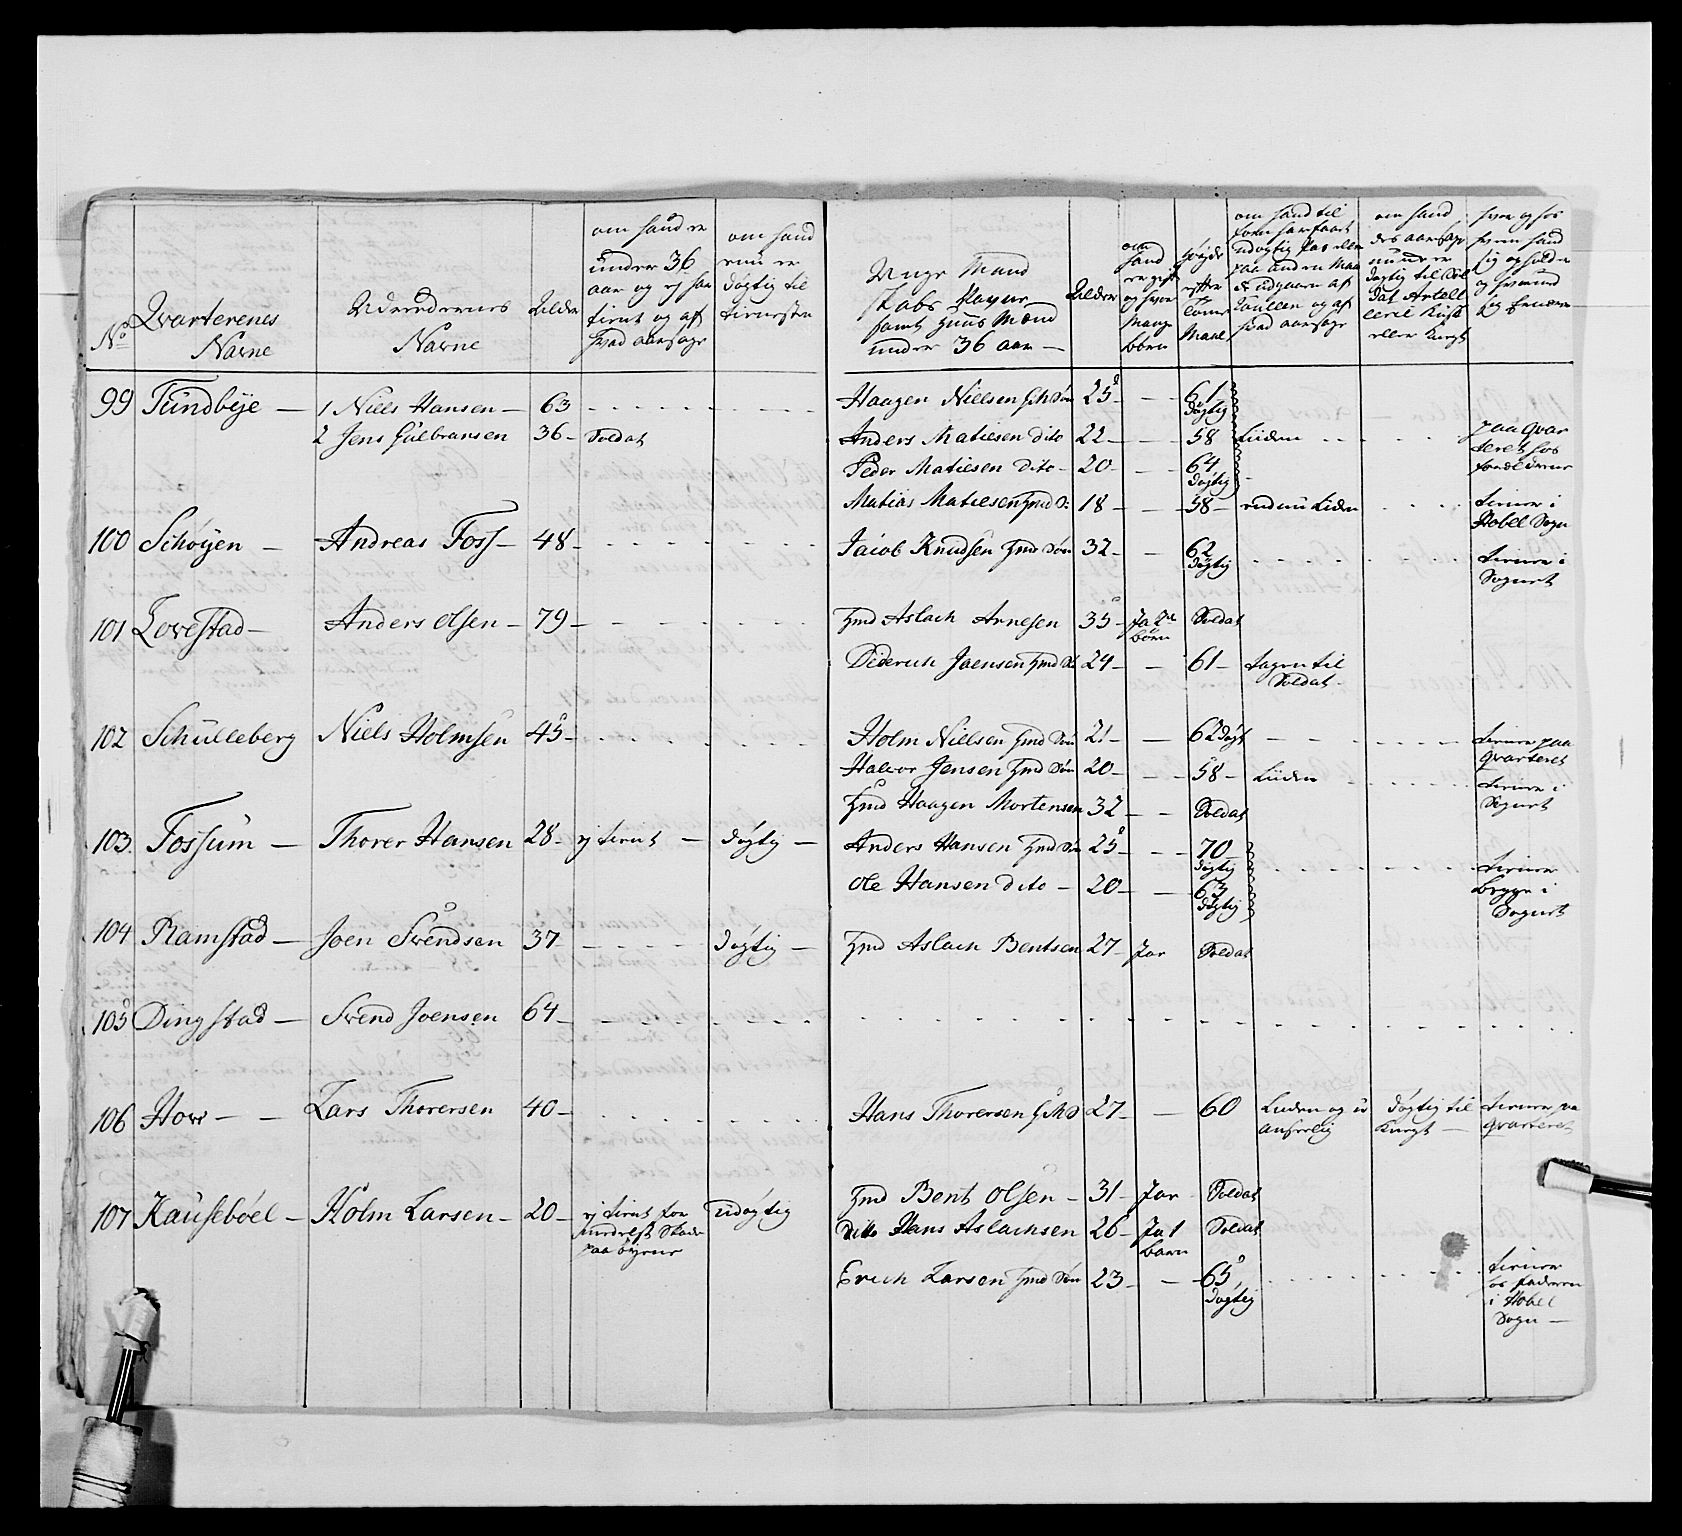 No Qvarterenes Navne
Udreedernes Navne
Alder
om hand er under 36 aar og ej har tient og af hvad aarsage
om hand enu er døgtig til tieneste
Unge Mand skabs Navne samt Huus Mænd under 36 aar
Alder
om hand er gift og hvor Mange børn
høyde efter Tomer Maal
om hand til forn har faaet udøgtig Pas eller paa anden Maade udgaaen af Rullen og af hvad aarsage
om hand des aarsage nu er døgtig til Soldat Artelleri Kusk eller Knegt
hvor og hos hvem hand sig opholder og hvormed sig ernærer
99 Tundbye — 1 Niels Hansen — 63 Haagen Nielsen Søn 25 — 61 døgtig
2 Jens Gulbransen 36 — Soldat Anders Matiesen dito 22 — 58 Liiden paa qvarteret hos forældrene
Peder Matiesen dito — 20 — 64 døgtig
Matias Matiesen Hmd S: 18 — 58 — end nu Liiden tiener i Hobel Sogn
100 Schøyen — Andreas Foss — 48 — Jacob Knudsen Hmd Søn 32 — 62 døgtig tiener i Sognet
101 Lovestad — Anders Olsen — 79 — Hmd Aslach Arnesen 35 — Ja 2de børn Soldat
Diderich Joensen Hmd S 24 — 61 — tagen til Soldat
102 Schulleberg Niels Holmsen 45 — Holm Nielsen Hmd Søn 21 — 62 døgt tiener paa qvarteret
Halvor Jensen Hmd Søn 20 — 58 — Liiden tiener i Sognet
Hmd Haagen Mortensen 32 — Soldat
103. Fossum — Thorer Hansen 28 — ej tient — døgtig — Anders Hansen Hmd Søn 25 — 70 døgtig tiener
Ole Hansen dito — 20 — 63 døgtig begge i Sognet
104 Ramstad — Joen Svendsen 37 — døgtig — Hmd Aslach Bentsen 27 — Jar Soldat
105 Dingstad — Svend Joensen 64 —
106 How — Lars Thorersen 40 — Hans Thorersen 27 — 60 Liiden og u anseelig døgtig til Knegt — tiener paa qvarteret
107 Kausebøel — Holm Larsen — 20 — ej tient for medelst Skade paa øynene udøgtig Hmd Bent Olsen — 31 — Jar Soldat
Ditto Hans Aslachsen 26 — Ja 1 barn Soldat
Erich Larsen Hmd Søn 23 — 65 døgtig tiener hos faderen i Hobel Sogn —